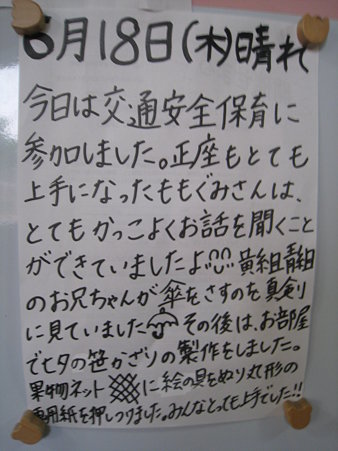 6月18日(木)晴れ
今日は交通安全保育に
参加しました。正座もとても
上手になったももぐみさんは、
とてもかっこよくお話を聞くこと
ができていましたよ 黄組青組
のお兄ちゃんが傘をさすのを真剣
に見ていました その後は、お部屋
で七夕の笹かざりの製作をしました。
果物ネット に絵の具をぬり丸形の
画用紙を押しつけました。みんなとっても上手でした!!